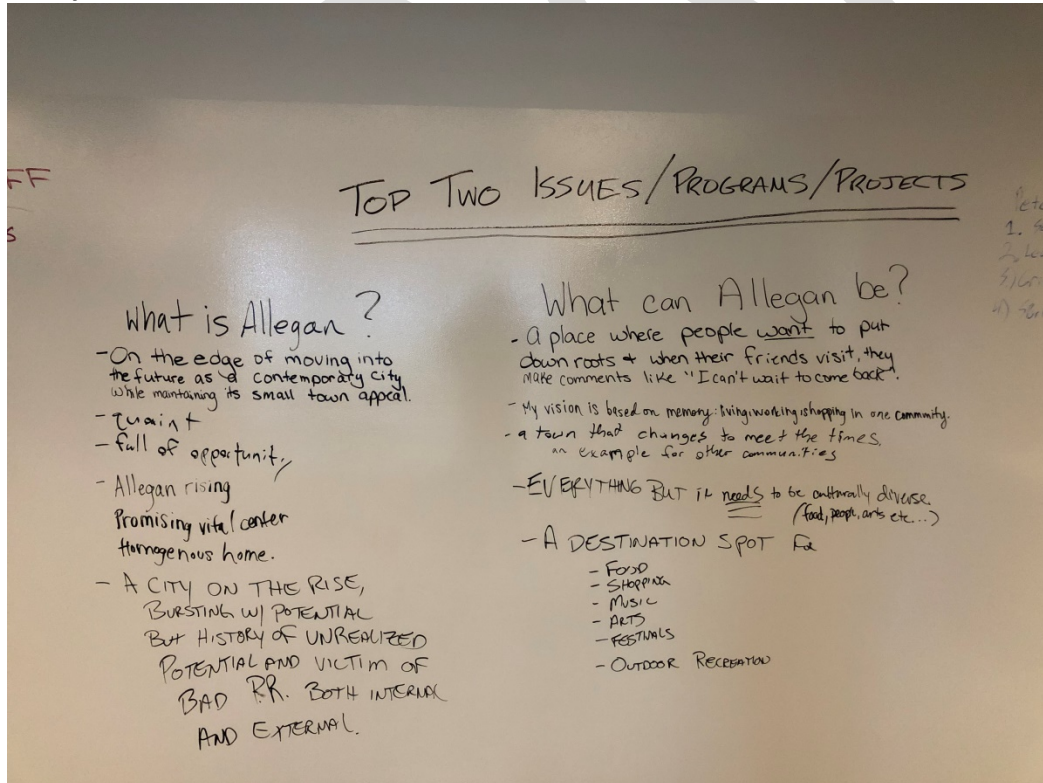 FF
S
TOP TWO ISSUES/PROGRAMS/PROJECTS
What is Allegan?
- On the edge of moving into
the future as a contemporary city
while maintaining its small town appeal.
- Quaint
- full of opportunity
- Allegan rising
Promising vital center
Homogenous home.
- A CITY ON THE RISE,
BURSTING W/ POTENTIAL
BUT HISTORY OF UNREALIZED
POTENTIAL AND VICTIM OF
BAD P.R. BOTH INTERNAL
AND EXTERNAL.
What can Allegan be?
- a place where people want to put
down roots + when their friends visit, they
make comments like "I can't wait to come back".
- My vision is based on memory: living, working, shopping in one community.
- a town that changes to meet the times
an example for other communities
- EVERYTHING BUT it needs to be culturally diverse.
(food, people, arts etc...)
- A DESTINATION SPOT FOR
- FOOD
- SHOPPING
- MUSIC
- ARTS
- FESTIVALS
- OUTDOOR RECREATION
1.
2.
3)
4)